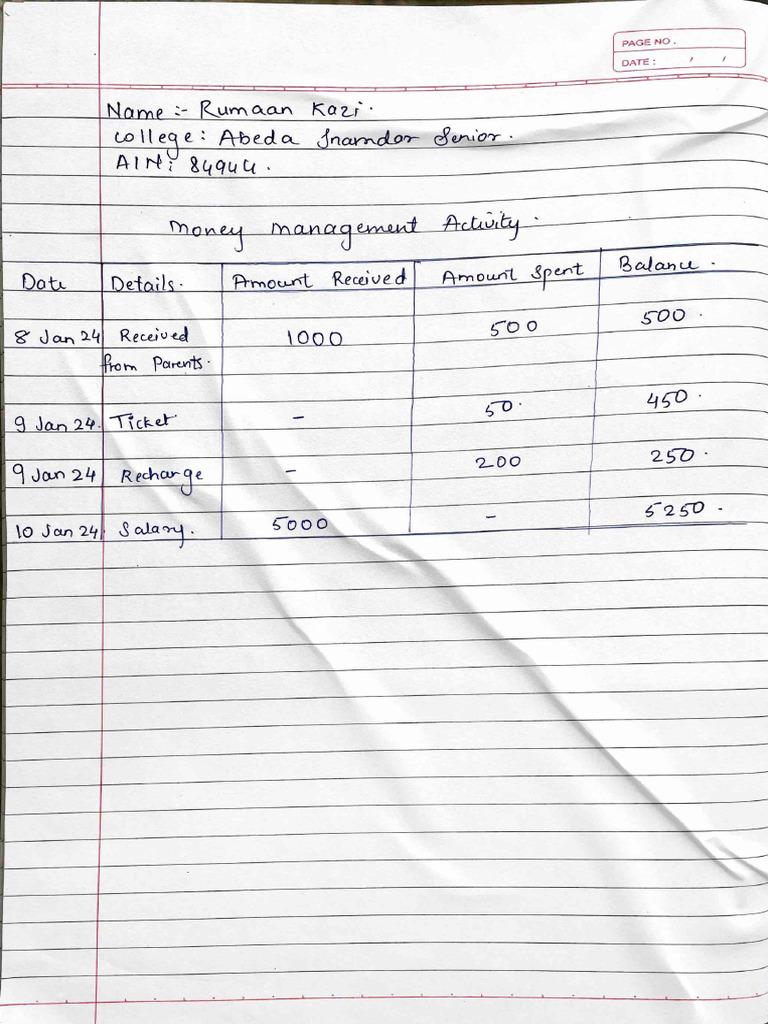 PAGE NO.
DATE: / /
Name :- Rumaan Kazi.
College: Abeda Inamdar Senior.
AIN: 84944.
Money management Activity.
Date Details. Amount Received Amount Spent Balance.
8 Jan 24 Received 1000 500 500.
from Parents.
9 Jan 24. Ticket. - 50. 450.
9 Jan 24 Recharge - 200 250.
10 Jan 24 Salary. 5000 - 5250.